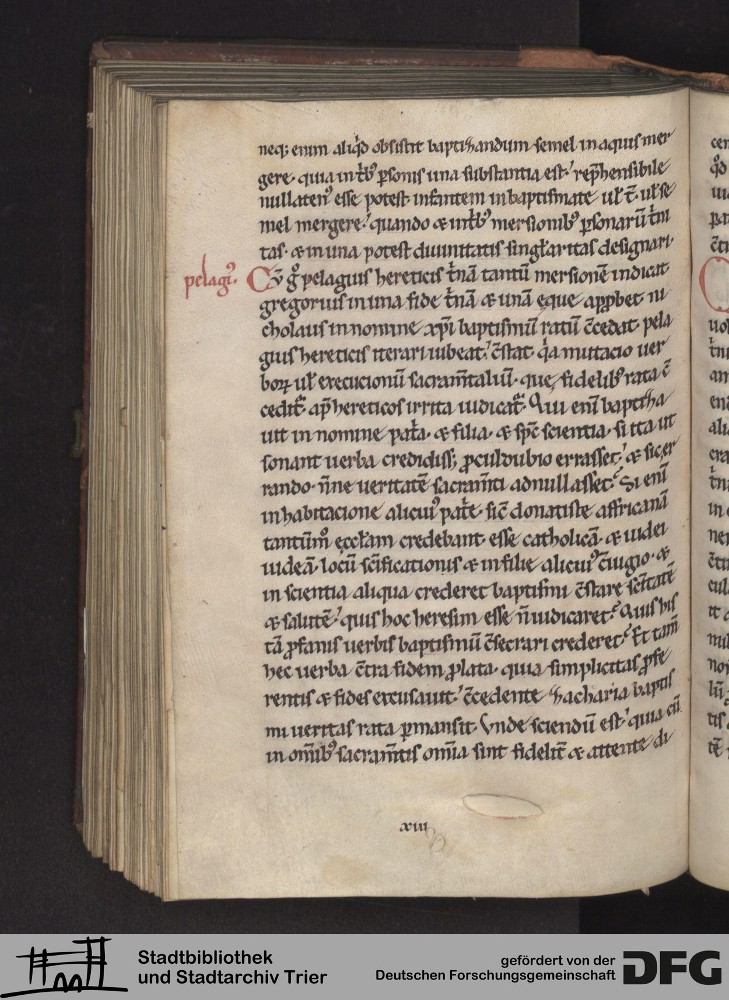 neq; enim aliq̇d obsistit baptizandum semel in aquis mer
gere· quia in t̄bꝰ p̱sonis una substantia est· rep̄hensibile
nullatenꝰ esse potest infantem in baptismate ul̄ t̄· ul̄ se
mel mergere· quando & in t̄bꝰ mersionibꝰ p̱sonarū t̄ni
tas· & in una potest diuinitatis singl̄aritas designari·
pelagiꝰ·
Cū g̊ pelagius hereticis t̄nā tantū mersionē indicat
gregorius in una fide t̄nā & unā ęque app̱bet· ni
cholaus in nomine xp̄i baptismū ratū c̄cedat· pela
gius hereticis iterari iubeat· c̄stat· q̇a mutacio uer
boꝝ ul̄ execucionū sacram̄taliū· que fidelibꝰ rata c̄
cedit̄· ap̄ hereticos irrita iudicat̄· Qui enī baptiza
uit in nomine pat̄a· & filia· & sp̄c scientia· si ita ut
sonant uerba credidiss; p̱culdubio errasset· & sic er
rando· n̄ne ueritatē sacram̄ti adnullasset? Si enī
inhabitacione alicuiꝰ pat̄e· sic̄ donatiste affricanā
tantūm̊ ęccl̄am credebant· esse catholicā· & uidei
uideā· locū sc̄ificationis & in filie alicuiꝰ c̄iugio· &
in scientia aliqua crederet baptismi c̄stare sc̄itatē
& salutē· quis hoc heresim esse n̄ iudicaret? Quis his
tā p̱fanis uerbis baptismū c̄secrari crederet? Et tam̄
hec uerba c̄tra fidem p̱lata· quia simplicitas p̱fe
rentis & fides excusauit· c̄cedente zacharia baptis
mi ueritas rata p̱mansit· Vnde sciendū est· quia cū
in om̄ibꝰ sacram̄tis om̄ia sint fidelit̄ & attente di
xiii
Stadtbibliothek
und Stadtarchiv Trier
gefördert von der
Deutschen Forschungsgemeinschaft
DFG